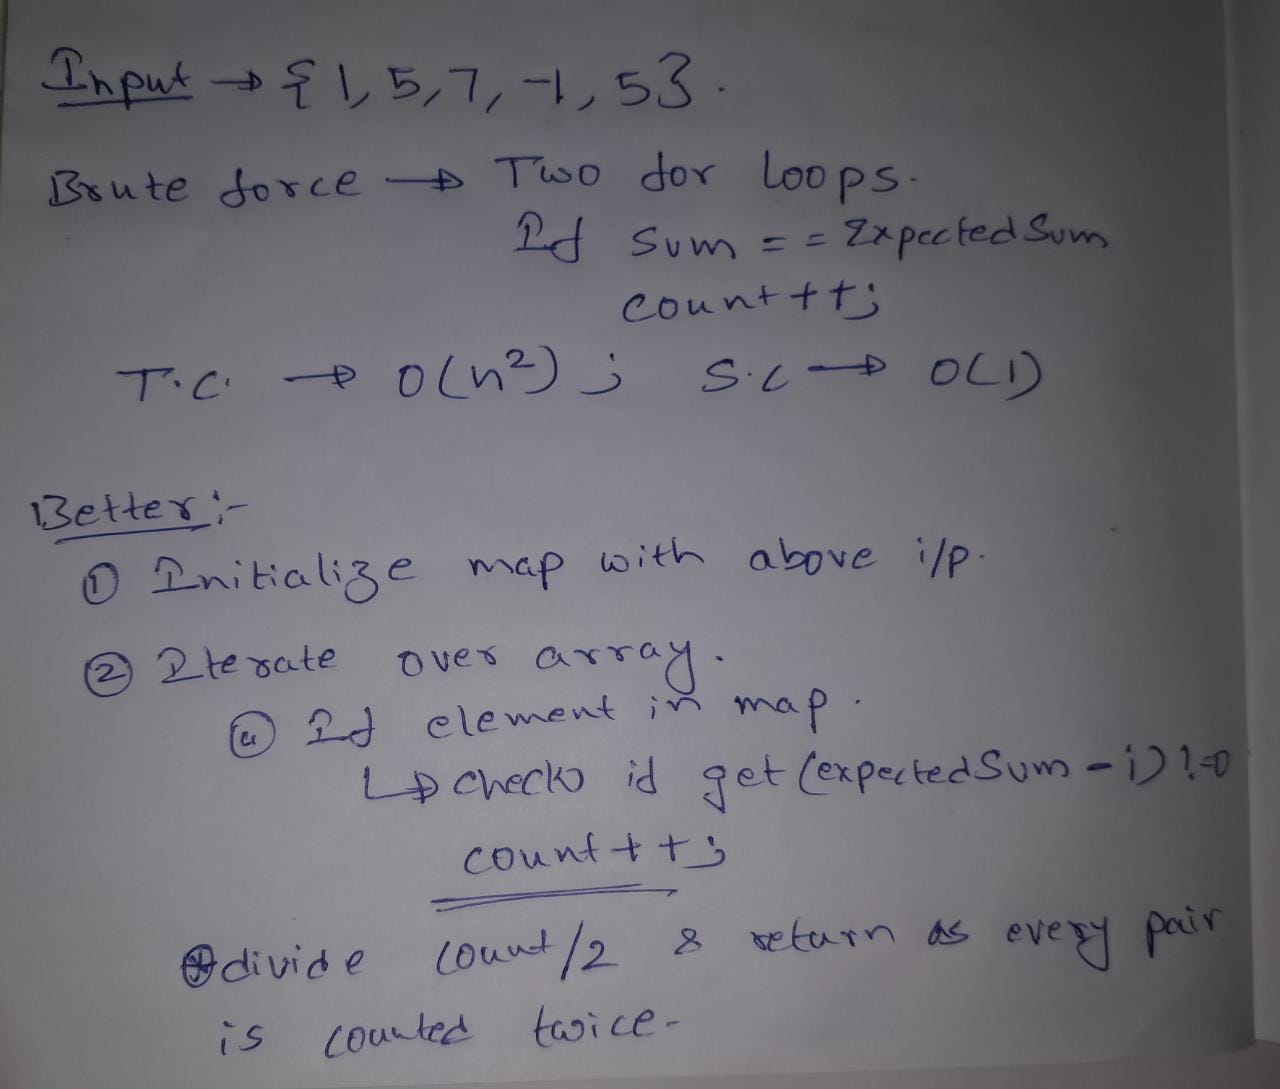 Input → {1, 5, 7, -1, 5}.
Brute force → Two for loops.
If sum == ExpectedSum
count++;
T.C. → O(n²) ; S.C → O(1)
Better:-
① Initialize map with above i/p.
② Iterate over array.
ⓐ If element in map.
↳ Check if get(expectedSum - i) != 0
count++;
divide count/2 & return as every pair
is counted twice.